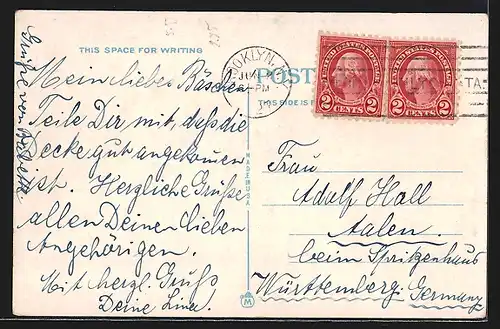 THIS SPACE FOR WRITING
Mein liebes Bäschen
Teile Dir mit, daß die
ecke gut angekommen
ist. Herzliche Grüße
allen Deinen lieben
Angehörigen.
Mit herzl. Gruß
Deine Lina.
Grüße von
MADE IN USA
M
BROOKLYN, N.Y.
JUN
PM
POST
THIS SIDE IS
UNITED STATES POSTAGE
2 CENTS 2
UNITED STATES POSTAGE
2 CENTS 2
STA.
Frau
Adolf Hall
Aalen.
beim Spritzenhaus
Württemberg. Germany